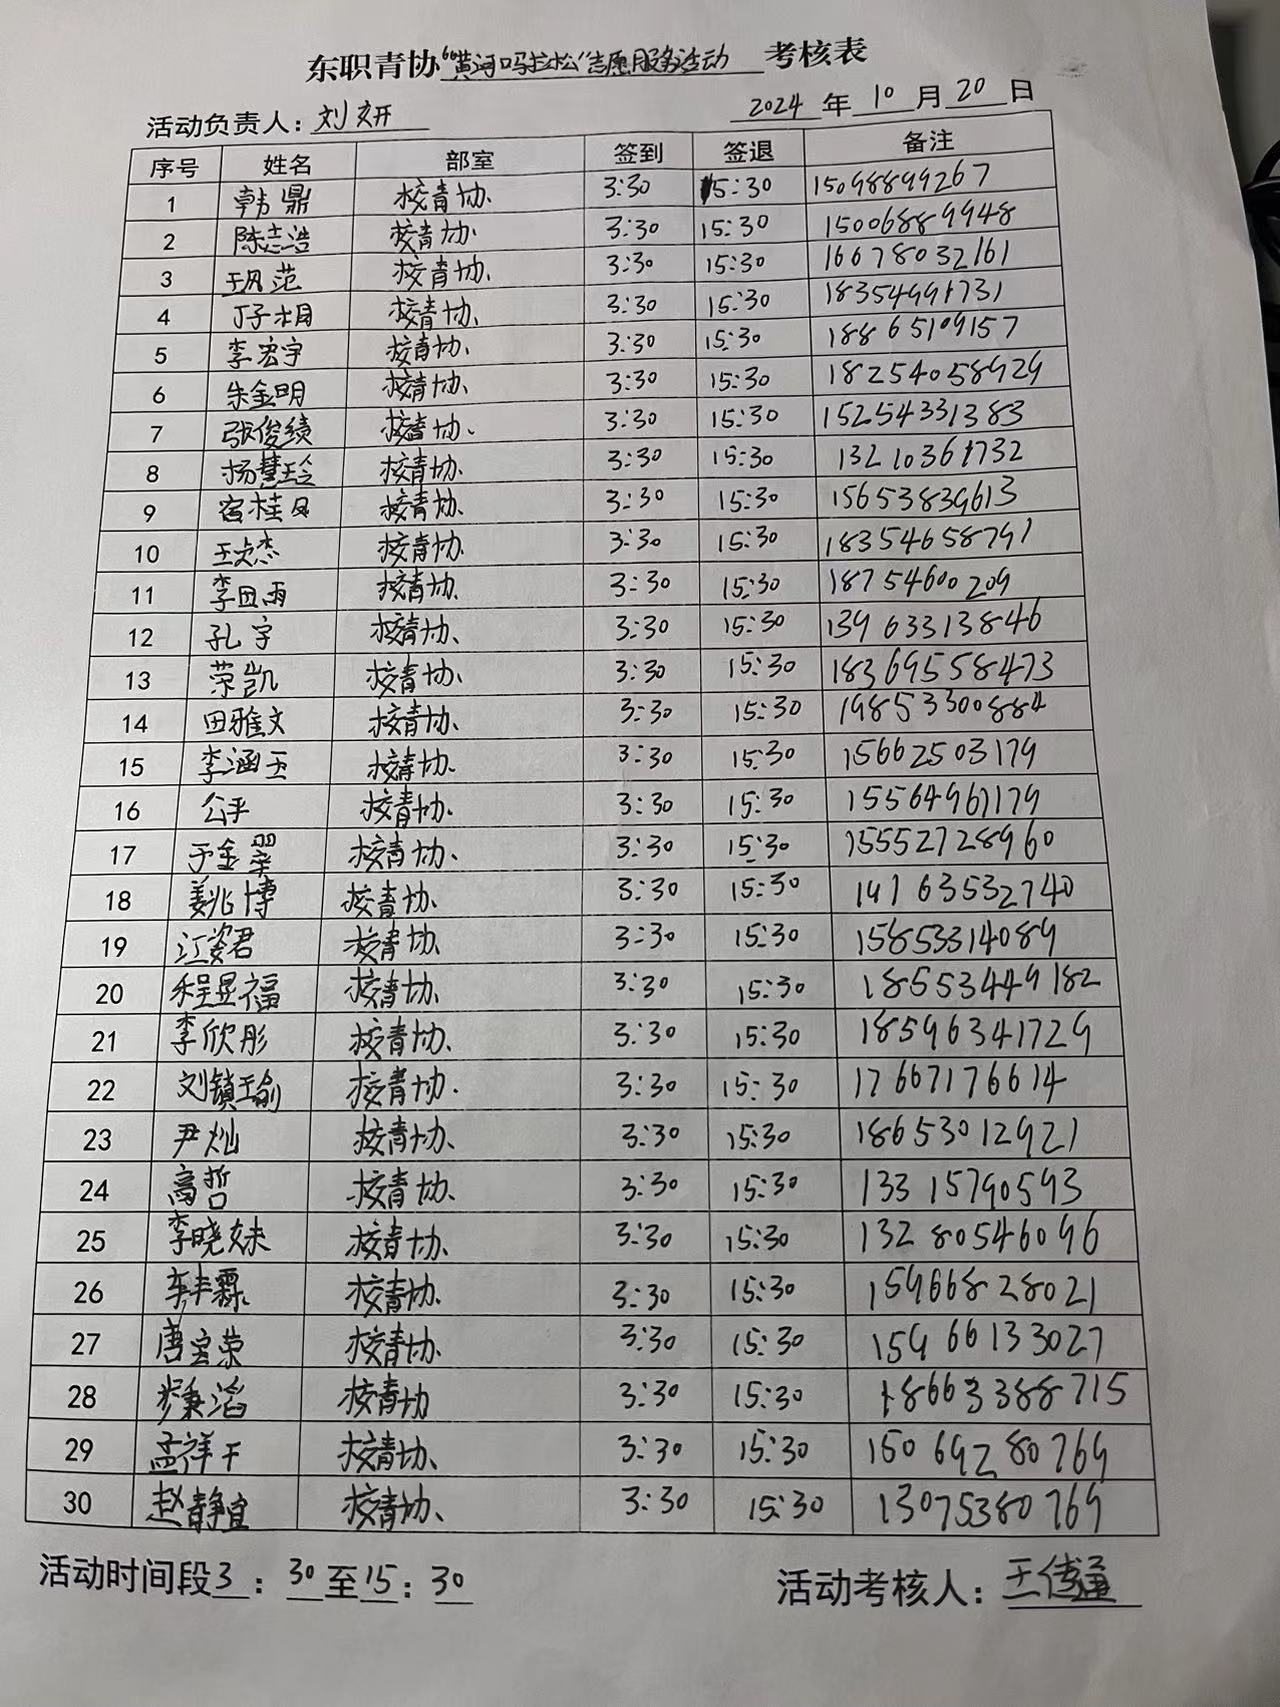 东职青协“黄河口马拉松”志愿服务活动 考核表
活动负责人：刘妍 2024 年 10 月 20 日
序号 姓名 部室 签到 签退 备注
1 韩鼎 校青协 3:30 15:30 15098899267
2 陈志浩 校青协 3:30 15:30 15006889948
3 范 校青协 3:30 15:30 16678032161
4 丁子 校青协 3:30 15:30 18354991731
5 李宏宇 校青协 3:30 15:30 18865109157
6 朱金明 校青协 3:30 15:30 18254058929
7 张俊绩 校青协 3:30 15:30 15254331383
8 杨慧玲 校青协 3:30 15:30 13210361732
9 宿桂 校青协 3:30 15:30 15653839613
10 王文杰 校青协 3:30 15:30 18354658791
11 李田雨 校青协 3:30 15:30 18754600209
12 孔宇 校青协 3:30 15:30 13963313846
13 荣凯 校青协 3:30 15:30 18369558473
14 田雅文 校青协 3:30 15:30 19853300884
15 李涵玉 校青协 3:30 15:30 15662503179
16 公平 校青协 3:30 15:30 15564961179
17 于金翠 校青协 3:30 15:30 15552728960
18 姜兆博 校青协 3:30 15:30 19163532740
19 江姿君 校青协 3:30 15:30 15853314089
20 程昱福 校青协 3:30 15:30 18553449182
21 李欣彤 校青协 3:30 15:30 18596341729
22 刘镇瑜 校青协 3:30 15:30 17667176614
23 尹灿 校青协 3:30 15:30 18653012921
24 高哲 校青协 3:30 15:30 13315790593
25 李晓妹 校青协 3:30 15:30 13280546096
26 车丰霖 校青协 3:30 15:30 15966828021
27 唐宝荣 校青协 3:30 15:30 15966133027
28 校青协 3:30 15:30 18663388715
29 孟祥干 校青协 3:30 15:30 15069280769
30 赵静宜 校青协 3:30 15:30 13075380769
活动时间段3：30至15：30 活动考核人：王传通